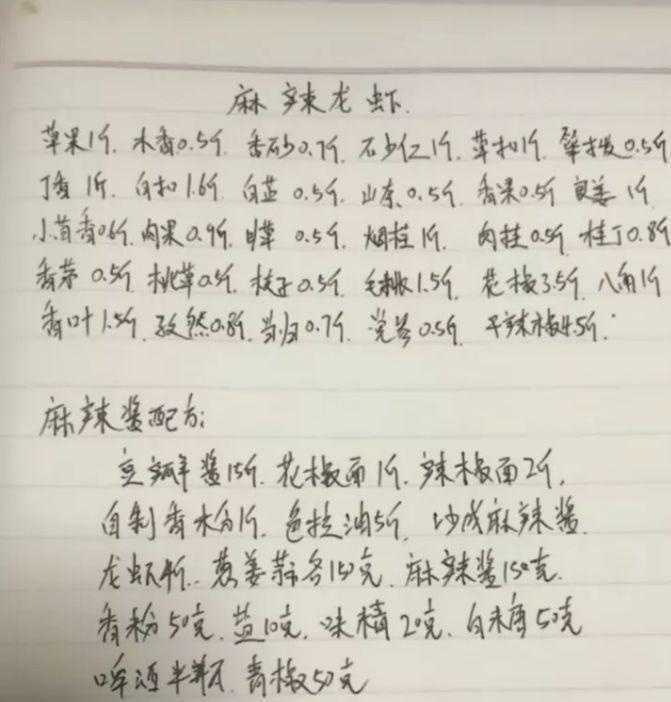 麻辣龙虾.
草果1斤. 木香0.5斤. 香砂0.7斤. 石少仁1斤. 草扣1斤. 荜拨0.5斤
丁香1斤. 白扣1.6斤. 白芷0.5斤. 山奈0.5斤. 香果0.5斤 良姜1斤
小茴香0.6斤. 肉果0.9斤. 甘草0.5斤. 烟桂1斤. 肉桂0.5斤. 桂丁0.8斤
香茅0.5斤 排草0.5斤. 枝子0.5斤. 毛桃1.5斤. 花椒3.5斤. 八角1斤
香叶1.5斤. 孜然0.8斤. 当归0.7斤. 0.5斤. 干辣椒4.5斤.
麻辣酱配方:
豆瓣酱15斤. 花椒面1斤. 辣椒面2斤,
自制香水1斤. 色拉油5斤, 炒成麻辣酱.
龙虾4斤. 葱姜蒜各150克. 麻辣酱150克.
香粉50克. 盐10克. 味精20克. 白糖50克
啤酒半瓶. 青椒50克